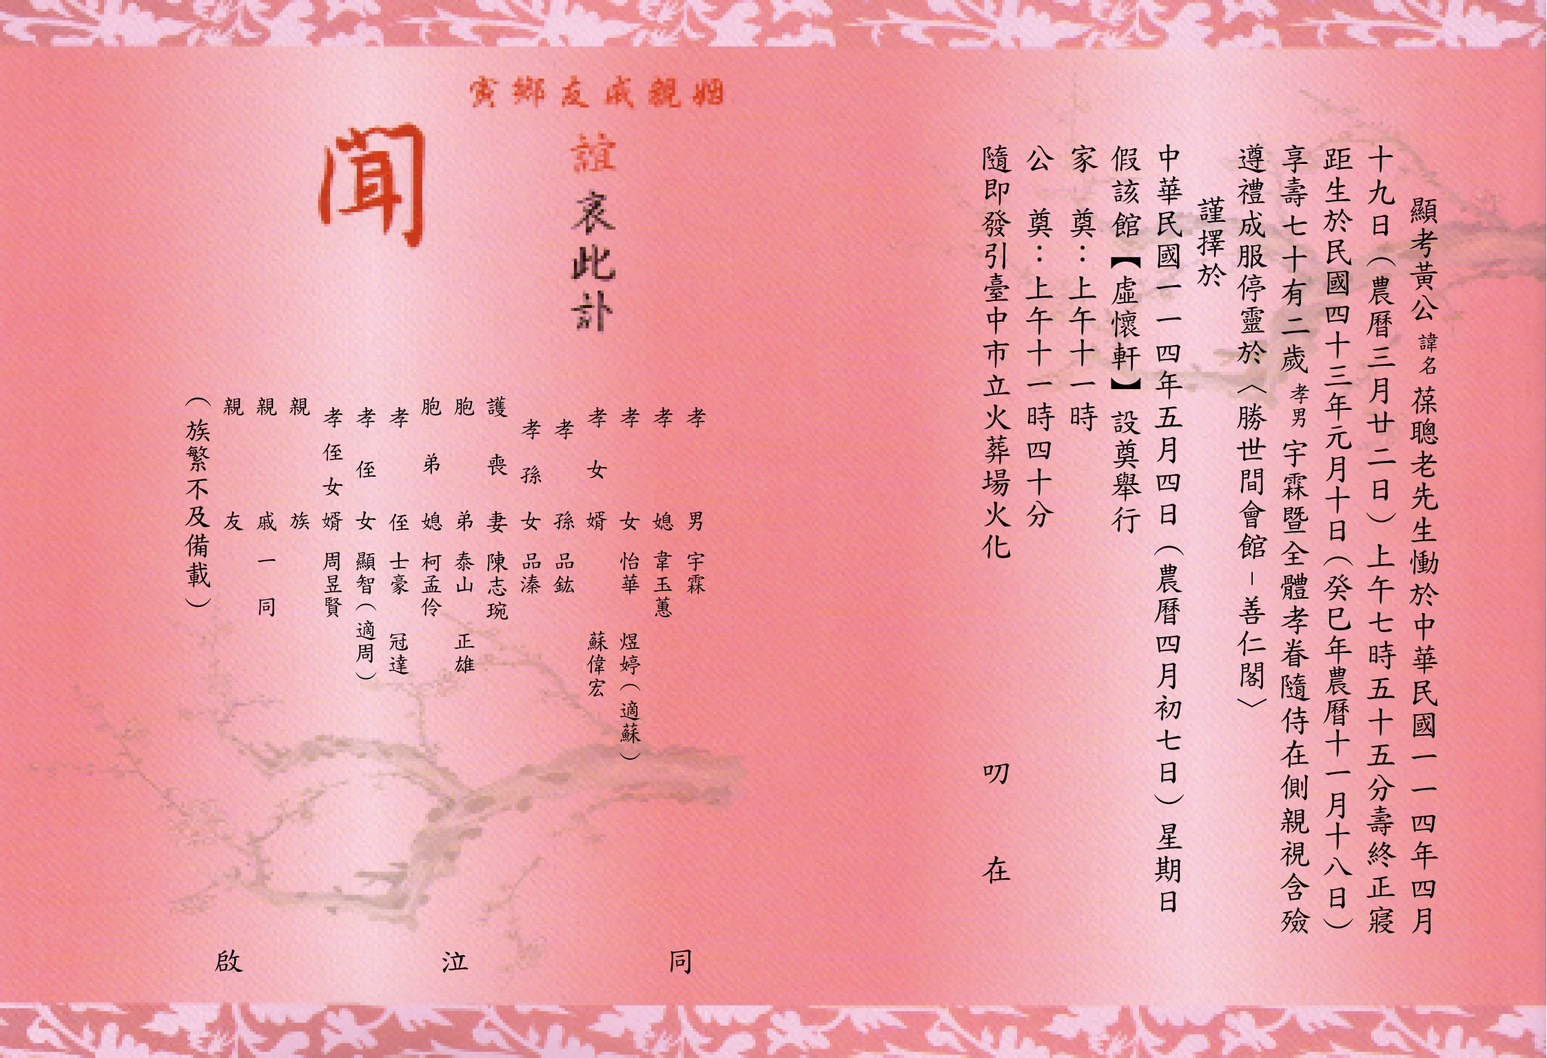 顯考黃公諱名葆聰老先生慟於中華民國一一四年四月
十九日（農曆三月廿二日）上午七時五十五分壽終正寢
距生於民國四十三年元月十日（癸巳年農曆十一月十八日）
享壽七十有二歲孝男宇霖暨全體孝眷隨侍在側親視含殮
遵禮成服停靈於〈勝世間會館－善仁閣〉
謹擇於
中華民國一一四年五月四日（農曆四月初七日）星期日
假該館【虛懷軒】設奠舉行
家　奠：上午十一時
公　奠：上午十一時四十分
隨即發引臺中市立火葬場火化
叨　在
姻親戚友鄉寅
誼哀此訃
聞
孝男　宇霖
孝媳　韋玉蕙
孝女　怡華　煜婷（適蘇）
孝女婿　蘇偉宏
孝孫　品鈜
孝孫女　品溱
護喪妻　陳志琬
胞弟　泰山　正雄
胞弟媳　柯孟伶
孝侄　士豪　冠達
孝侄女　顯智（適周）
孝侄女婿　周昱賢
親族
親戚　一同
親友
（族繁不及備載）
同　泣　啟